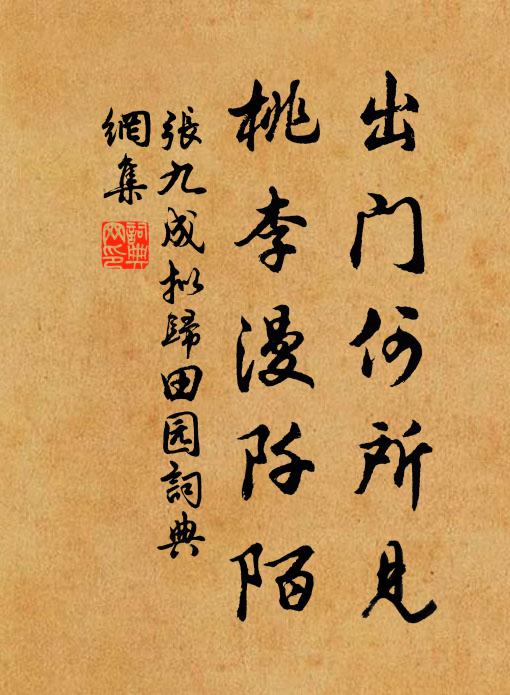 出门何所见
桃李漫阡陌
張九成拟歸田园詞典
網集
詞典
网印